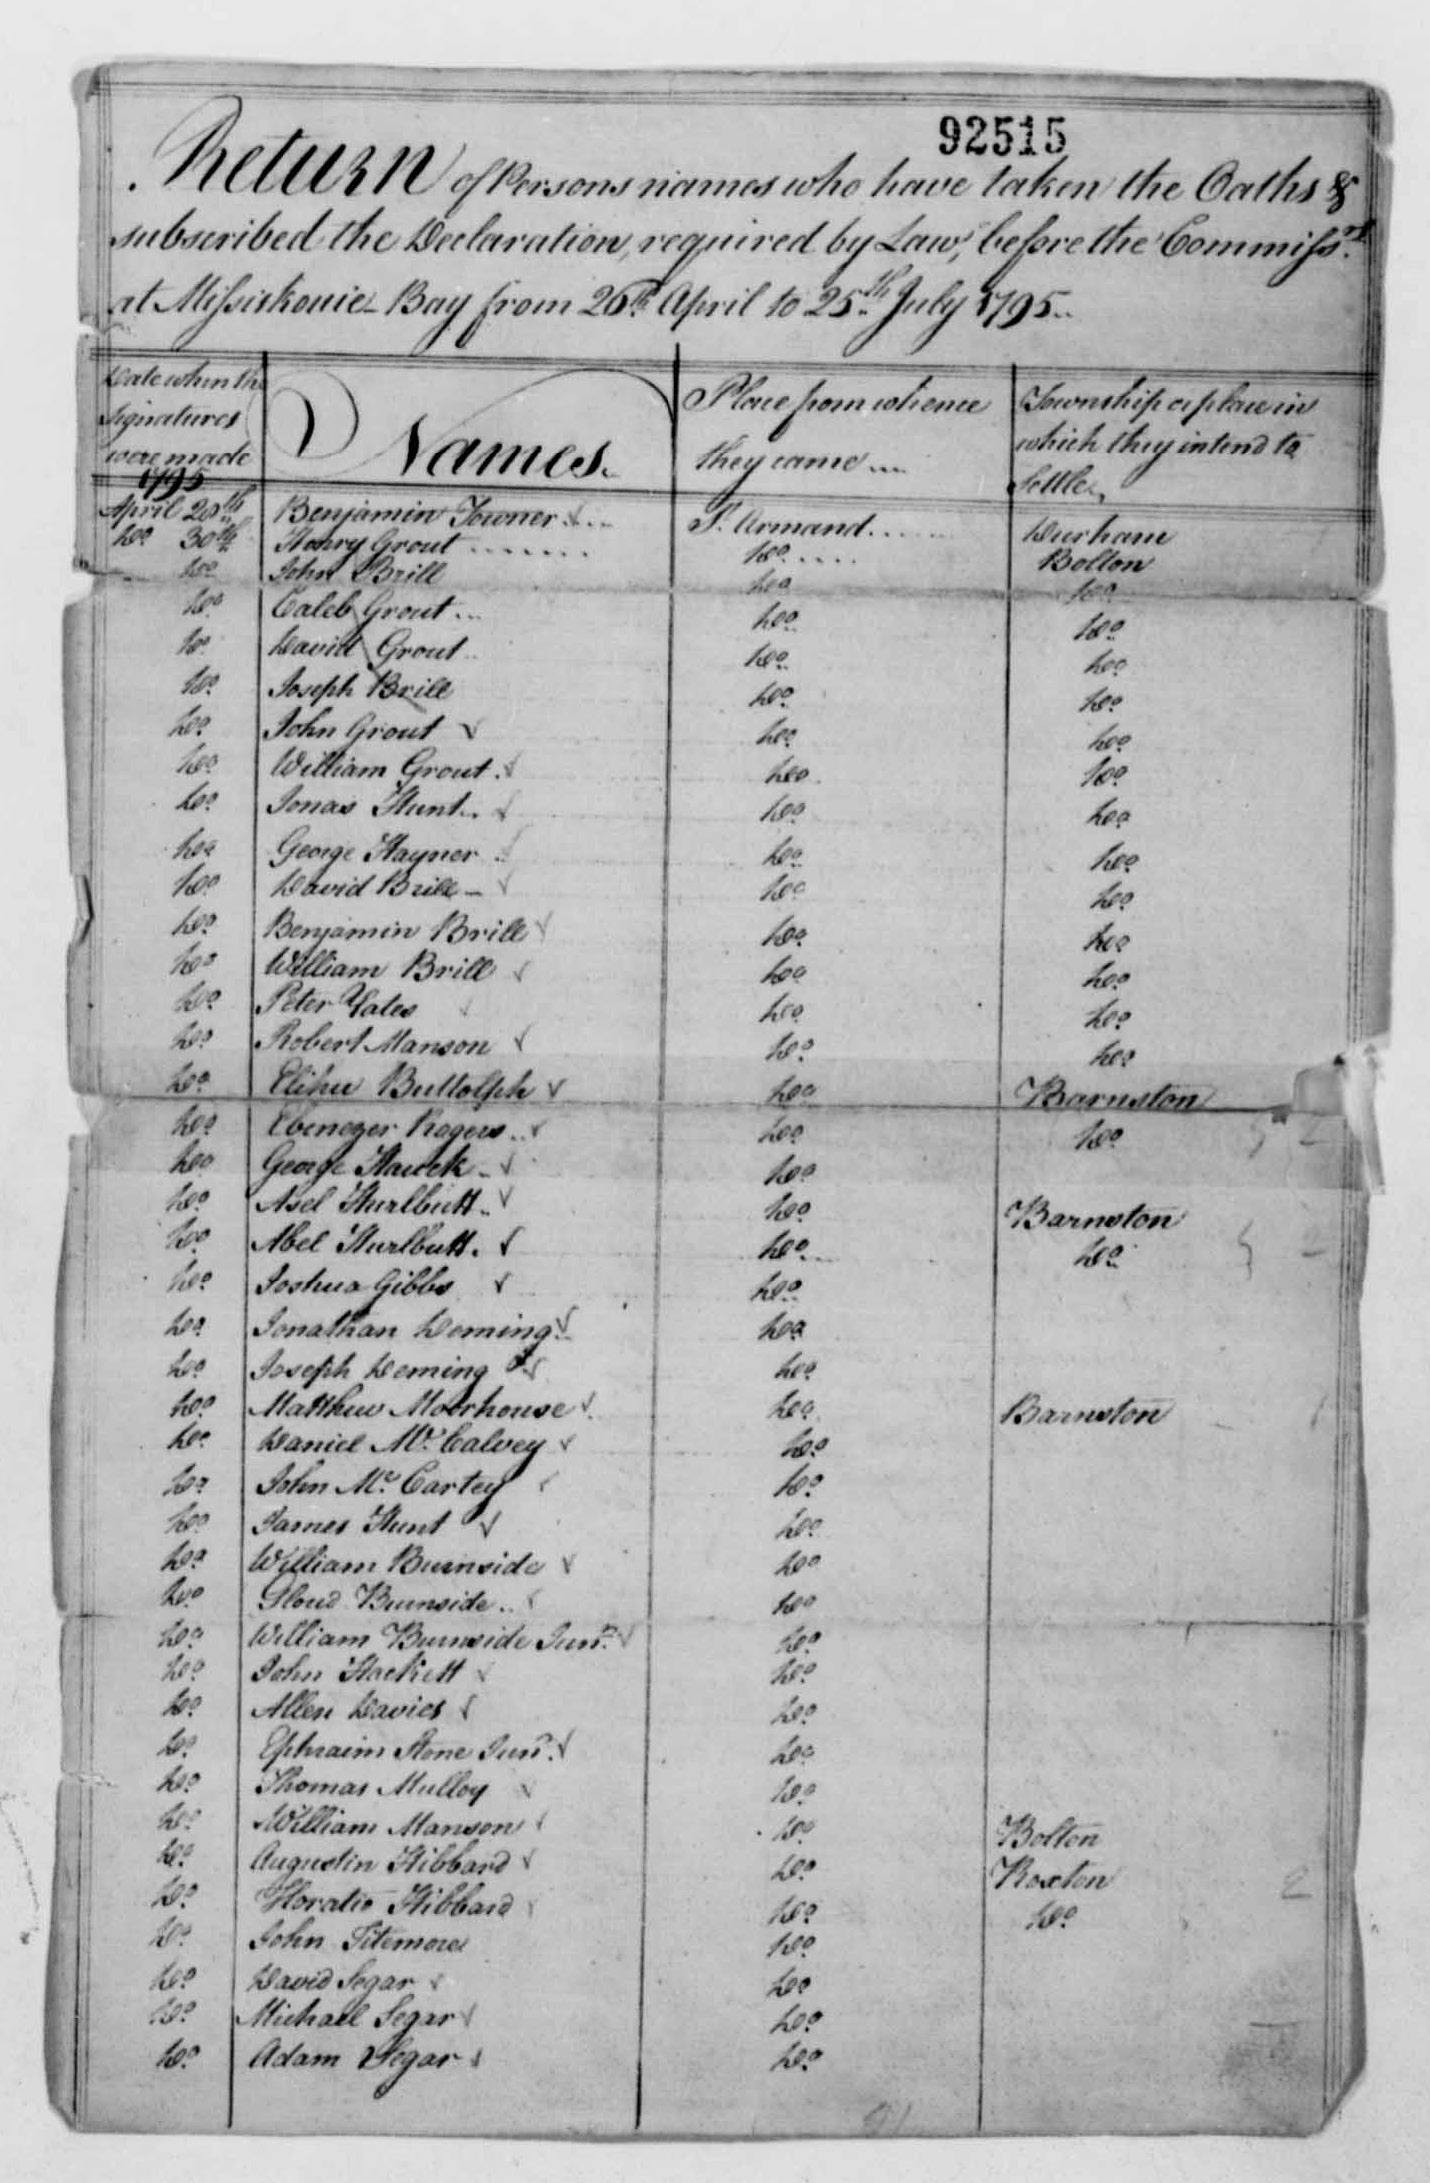 92515
Return of Persons names who have taken the Oaths &
subscribed the Declaration, required by Law, before the Commissrs
at Missiskouie Bay from 26th April to 25th July 1795
Date when the Signatures were made 1795 Names. Place from whence they came Township or place in which they intend to Settle
April 28th Benjamin Towner St. Armand Durham
Do 30th Henry Grout Do Bolton
Do John Brill Do Do
Do Caleb Grout Do Do
Do David Grout Do Do
Do Joseph Brill Do Do
Do John Grout Do Do
Do William Grout Do Do
Do Jonas Hunt Do Do
Do George Hayner Do Do
Do David Brill Do Do
Do Benjamin Brill Do Do
Do William Brill Do Do
Do Peter Yates Do Do
Do Robert Manson Do Do
Do Elihu Buttolph Do Barnston
Do Ebenezer Rogers Do Do
Do George Hauck Do
Do Asel Hurlbutt Do Barnston
Do Abel Hurlbutt Do Do
Do Joshua Gibbs Do
Do Jonathan Deming Do
Do Joseph Deming Do
Do Matthew Moorhouse Do Barnston
Do Daniel Mc Calvey Do
Do John Mc Cartey Do
Do James Hunt Do
Do William Burnside Do
Do Burnside Do
Do William Burnside Junr. Do
Do John Hackett Do
Do Allen Davies Do
Do Ephraim Stone Junr. Do
Do Thomas Mulloy Do
Do William Manson Do Bolton
Do Augustin Hibbard Do Roxton
Do Horatio Hibbard Do Do
Do John Titemore Do
Do David Segar Do
Do Michael Segar Do
Do Adam Segar Do